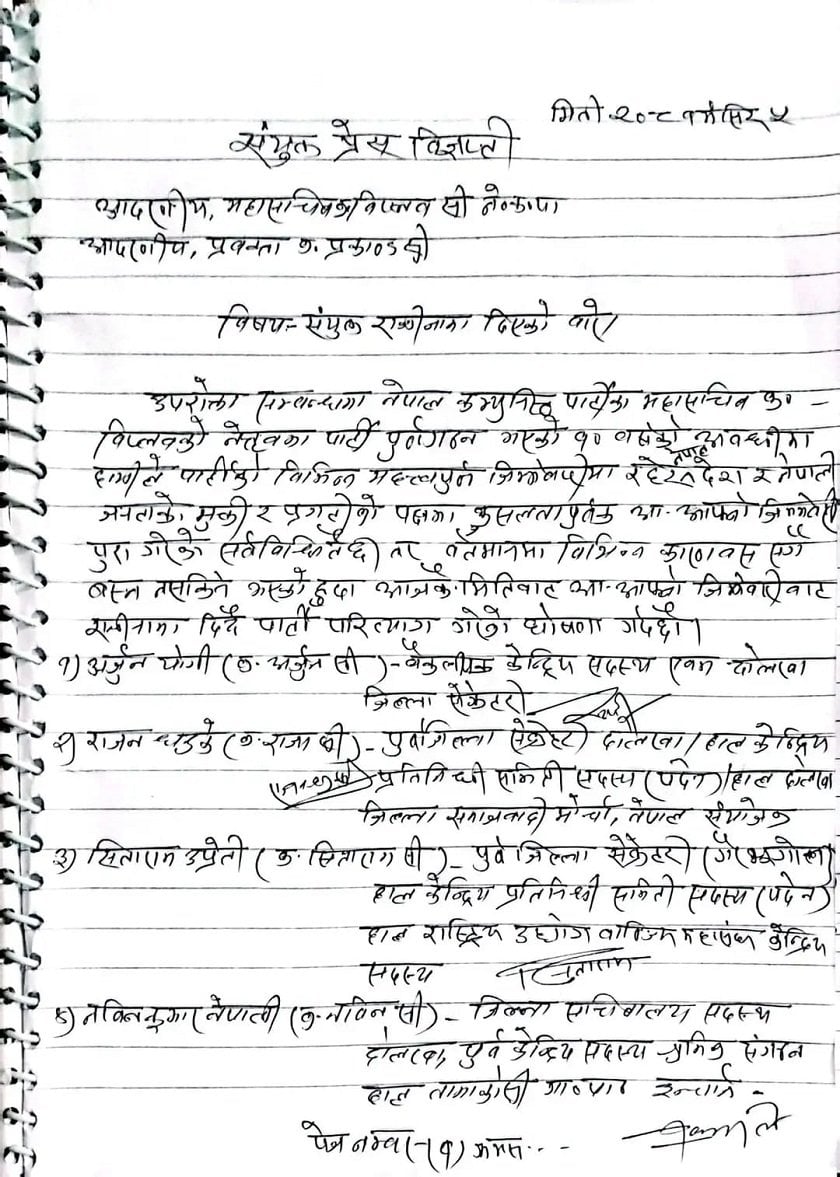 मिती २०८१ मंसिर ५
संयुक्त प्रेस विज्ञप्ती
आदरणीय, महासचिव क. विप्लव सी ने.क.पा
आदरणीय, प्रवक्ता क. प्रकाण्ड सी
विषय:- संयुक्त राजीनामा दिएको बारे।
उपरोक्त सम्बन्धमा नेपाल कम्युनिस्ट पार्टीका महासचिव क०
विप्लवको नेतृत्वमा पार्टी पुर्नगठन भएको १० वर्षको अवधीमा
हामीले पार्टीको विभिन्न महत्वपुर्ण जिम्मेवारीमा रहेर देश र नेपाली
जनताको मुक्ती र प्रगतीको पक्षमा कुसलतापुर्वक आ-आफ्नो जिम्मेवारी
पुरा गरेको सर्वविदितै छ। तर वर्तमानमा विभिन्न कारणवस सँगै
बस्न नसकिने भएको हुदा आजकै मितिबाट आ-आफ्नो जिम्मेवारीबाट
राजीनामा दिदै पार्टी परित्याग गरेको घोषणा गर्दछौ।
१) अर्जुन योगी (क. अर्जुन सी) - वैकल्पिक केन्द्रिय सदस्य एवम दोलखा
जिल्ला सेक्रेटरी
२) राजन खड्के (क. राजा सी) - पुर्व जिल्ला सेक्रेटरी दोलखा/हाल केन्द्रिय
प्रतिनिधी समिती सदस्य (पदेन)/हाल दोलखा
जिल्ला समाजवादी मोर्चा, नेपाल संयोजक
३) सिताराम उप्रेती (क. सिताराम सी) - पुर्व जिल्ला सेक्रेटरी (गैरभुगोल)
हाल केन्द्रिय प्रतिनिधी समिती सदस्य (पदेन)
हाल राष्ट्रिय उद्योग वाणिज्य महासंघ केन्द्रिय
सदस्य सिताराम
४) नविनकुमार नेपाली (क. नविन सी) - जिल्ला सचिवालय सदस्य
दोलखा, पुर्व केन्द्रिय सदस्य श्रमिक संगठन
हाल तामाकोसी गा०पा० इन्चार्ज -
पेज नम्बर-(१) क्रमस...